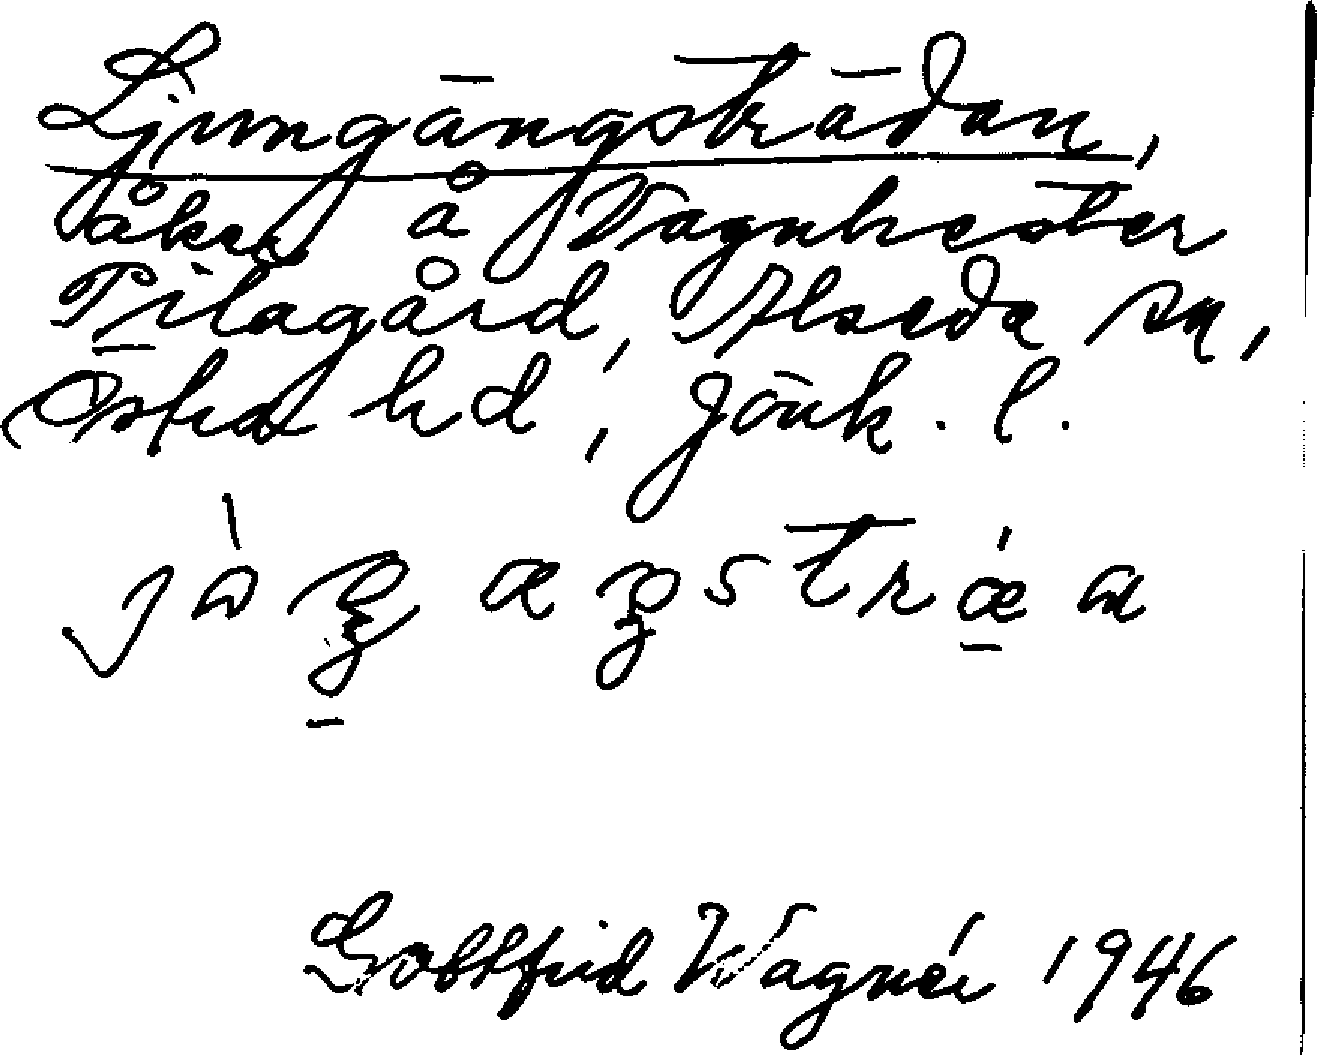 Ljungängsträdan,
åker å Vagnhester
Lilagård, Alseda sn,
Östra hd, Jönk. l.
Gottfrid Wagnér 1946